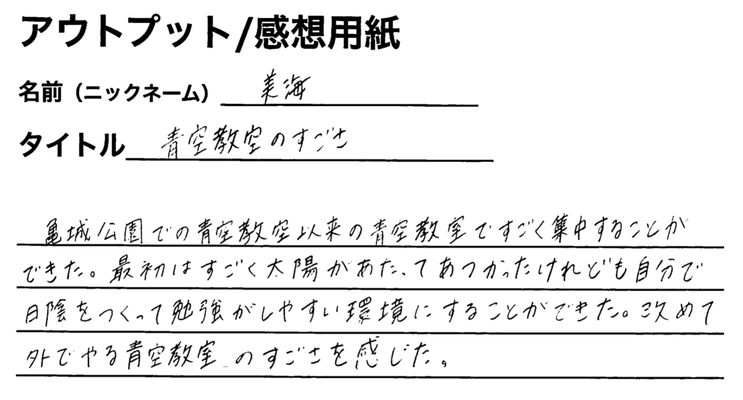 アウトプット/感想用紙
名前（ニックネーム） 美海
タイトル 青空教室のすごさ
亀城公園での青空教室以来の青空教室ですごく集中することが
できた。最初はすごく太陽があたってあつかったけれども自分で
日陰をつくって勉強がしやすい環境にすることができた。改めて
外でやる青空教室のすごさを感じた。